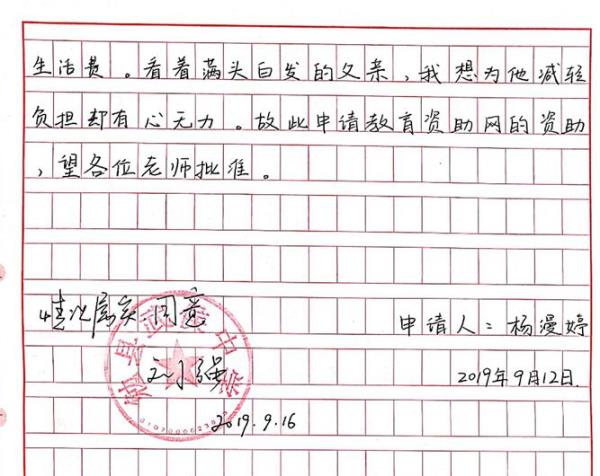 生活费。看着满头白发的父亲，我想为他减轻
负担却有心无力。故此申请教育资助网的资助
，望各位老师批准。
情况属实，同意
申请人：杨漫婷
2019年9月12日.
2019.9.16